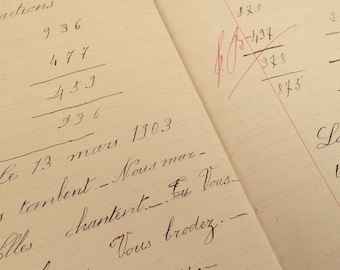 actions
936
477
459
936
Le 13 mars 1903
tombent_ Nous mar-
Elles chantent_. Vous
Vous brodez._
875
-497
378
875